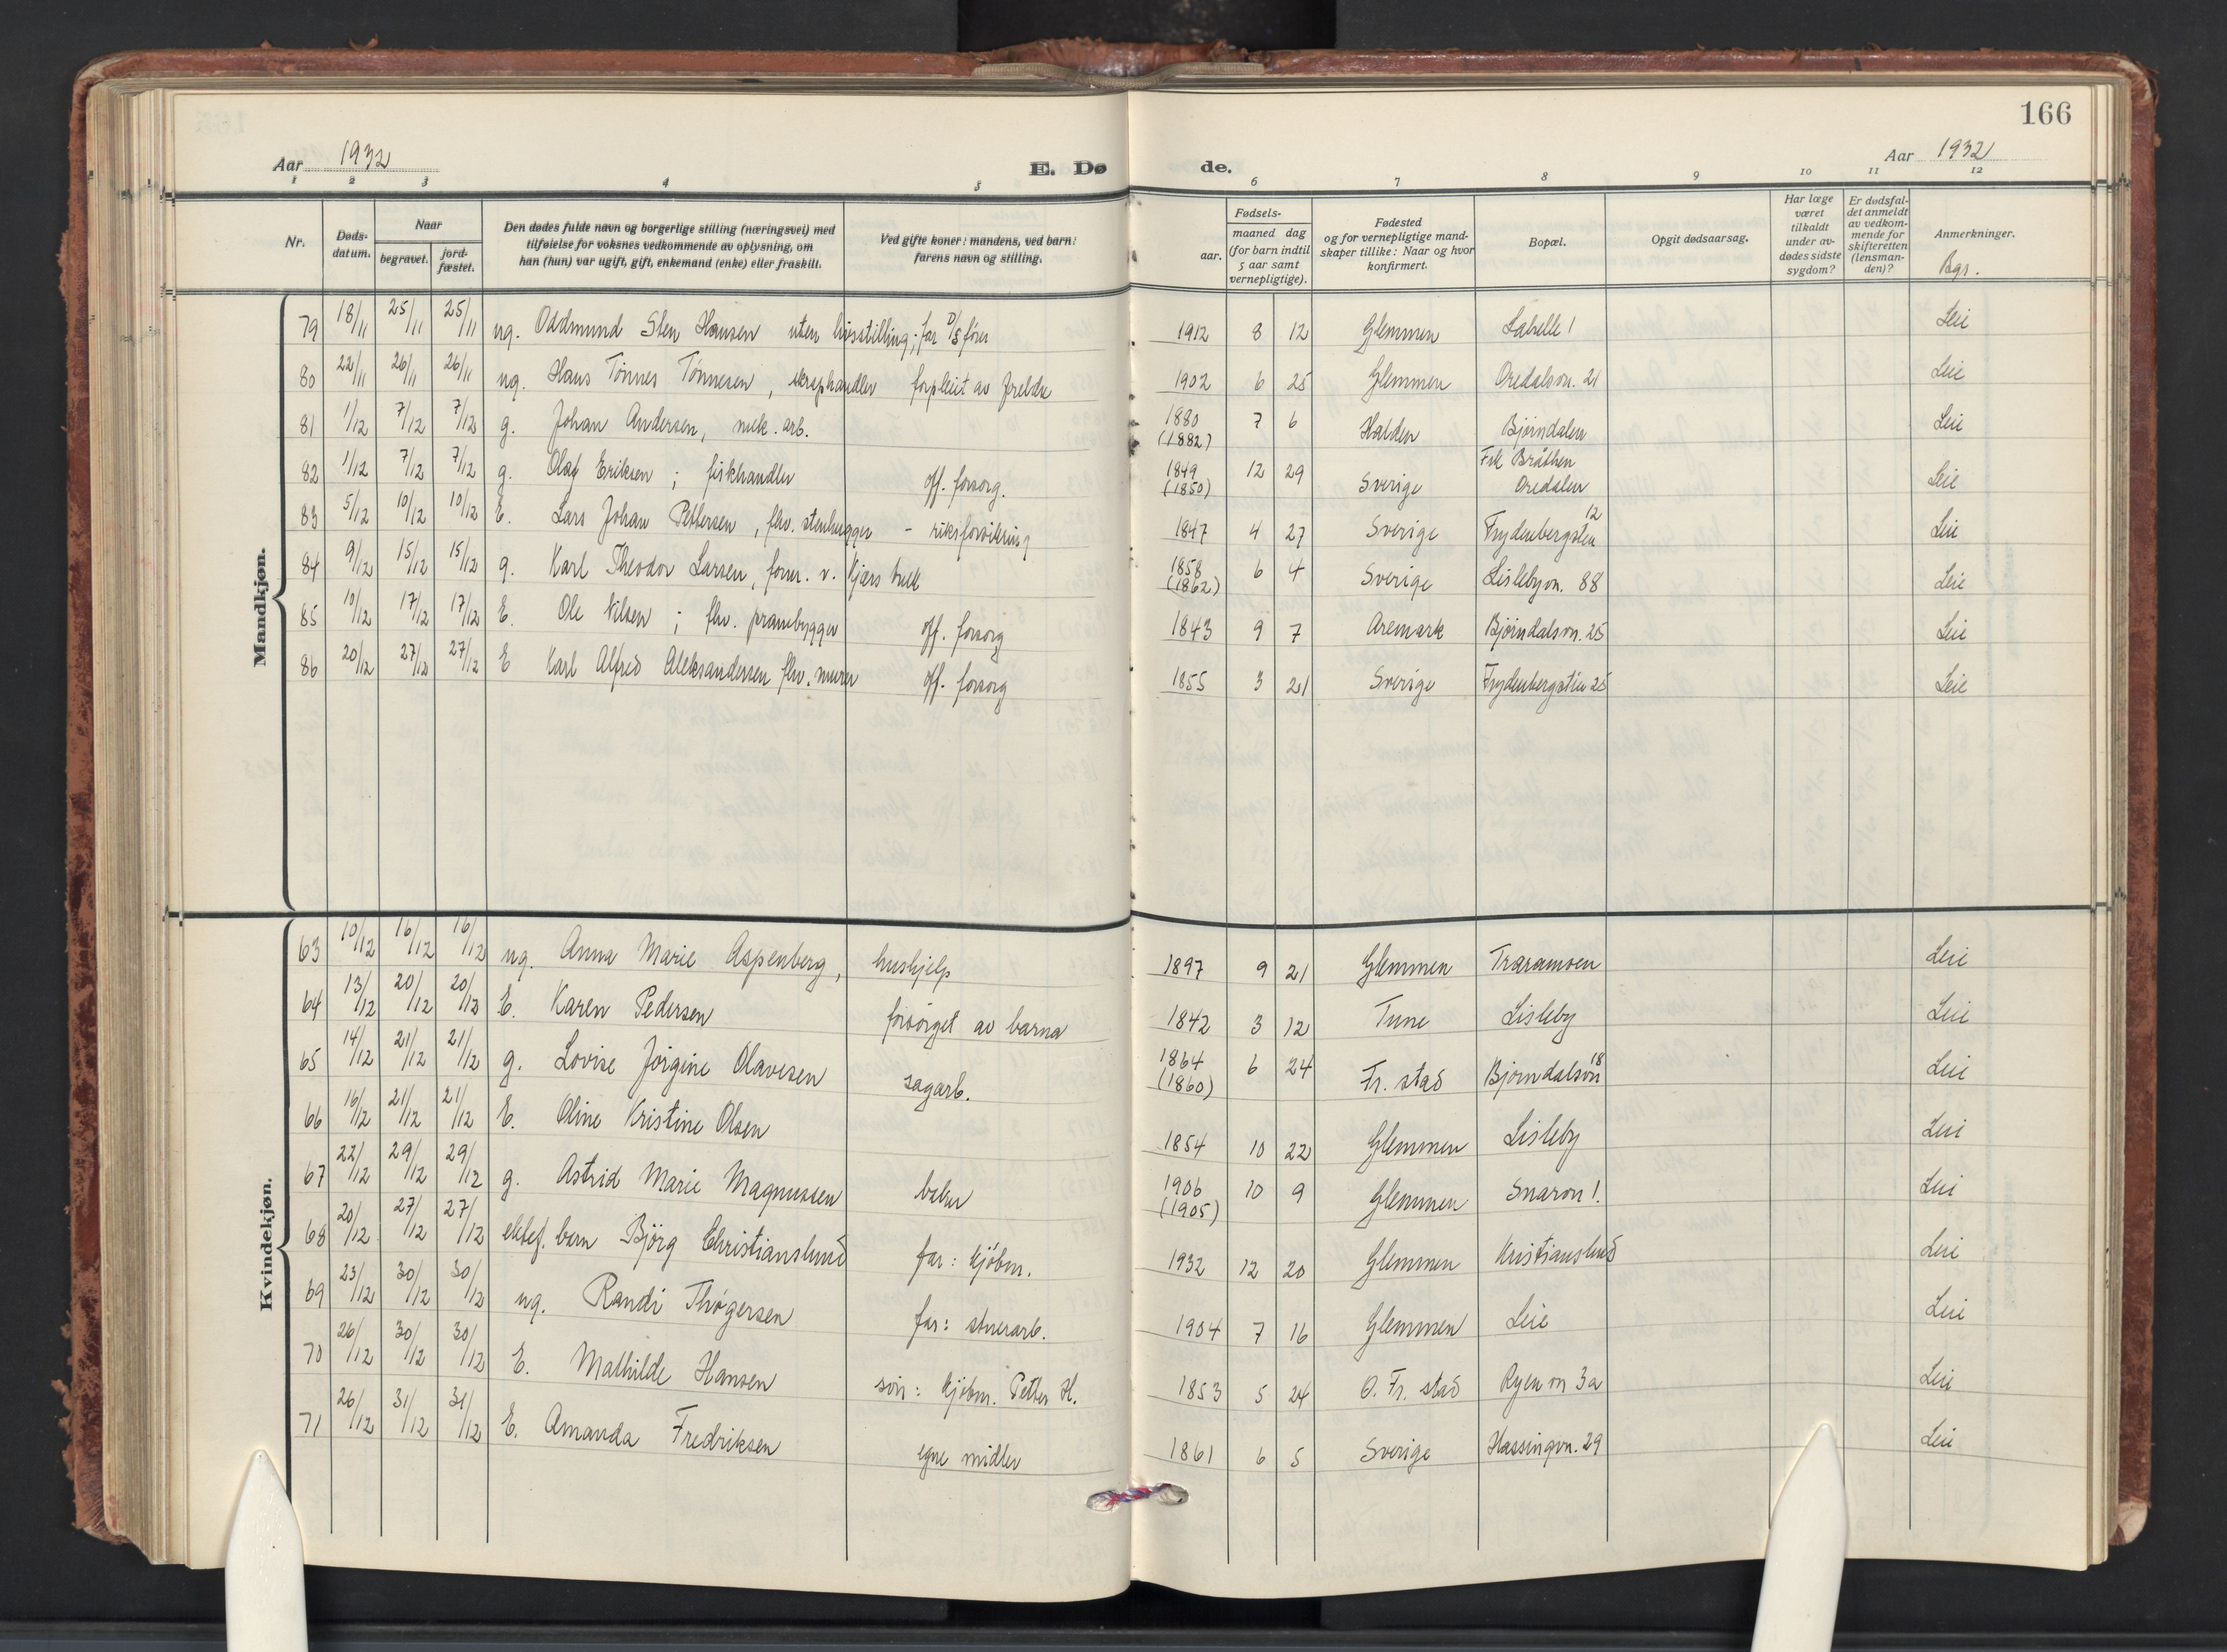 166
Aar 1932
E. Dø de.
Aar 1932
1 2 3 4 5 6 7 8 9 10 11 12
Nr.
Døds-
datum.
Naar
begravet.
jord-
fæstet.
Den dødes fulde navn og borgerlige stilling (næringsvei) med
tilføielse for voksnes vedkommende av oplysning, om
han (hun) var ugift, gift, enkemand (enke) eller fraskilt.
Ved gifte koner: mandens, ved barn:
farens navn og stilling.
Fødsels-
aar.
maaned dag
(for barn indtil
5 aar samt
vernepligtige).
Fødested
og for vernepligtige mand-
skaper tillike: Naar og hvor
konfirmert.
Bopæl.
Opgit dødsaarsag.
Har læge
været
tilkaldt
under av-
dødes sidste
sygdom?
Er dødsfal-
det anmeldt
av vedkom-
mende for
skifteretten
(lensman-
den)?
Anmerkninger.
Bgr.
Mandkjøn.
79 18/11 25/11 25/11 ug. Oddmund Sten Hansen uten livsstilling; far D/S fører 1912 8 12 Glemmen Labelle 1 Leie
80 22/11 26/11 26/11 ug. Hans Tønnes Tønnesen, skraphandler forpleiet av foreldre 1902 6 25 Glemmen Oredalsvn. 21 Leie
81 1/12 7/12 7/12 g. Johan Andersen, mek. arb. 1880 (1882) 7 6 Halden Bjørndalen Leie
82 1/12 7/12 7/12 g. Olaf Eriksen; fiskhandler off. forsorg. 1849 (1850) 12 29 Sverige Frk Bråthen Oredalen Leie
83 5/12 10/12 10/12 E. Lars Johan Pettersen, fhv. stenhugger - riksforsikring 1847 4 27 Sverige Frydenbergstien 12 Leie
84 9/12 15/12 15/12 g. Karl Theodor Larsen, form. v. Kjærs bruk 1858 (1862) 6 4 Sverige Lislebyvn. 88 Leie
85 10/12 17/12 17/12 E. Ole Nilsen; fhv. prambygger off. forsorg 1843 9 7 Aremark Bjørndalsvn. 25 Leie
86 20/12 27/12 27/12 E Karl Alfred Aleksandersen fhv. murer off. forsorg 1855 3 21 Sverige Frydenbergstien 25 Leie
Kvindekjøn.
63 10/12 16/12 16/12 ug. Anna Marie Aspenberg, hushjelp 1897 9 21 Glemmen Traraveien Leie
64 13/12 20/12 20/12 E. Karen Pedersen forsørget av barna 1842 3 12 Tune Lisleby Leie
65 14/12 21/12 21/12 g. Lovise Jørgine Olavesen sagarb. 1864 (1860) 6 24 Fr. stad Bjørndalsvn 18 Leie
66 16/12 21/12 21/12 E. Oline Kristine Olsen 1854 10 22 Glemmen Lisleby Leie
67 22/12 29/12 29/12 g. Astrid Marie Magnussen baker 1906 (1905) 10 9 Glemmen Snarvn 1. Leie
68 20/12 27/12 27/12 ektef. barn Bjørg Christianslund far: kjøbm. 1932 12 20 Glemmen Kristianslund Leie
69 23/12 30/12 30/12 ug. Randi Thøgersen far: stuerarb. 1904 7 16 Glemmen Leie Leie
70 26/12 30/12 30/12 E. Mathilde Hansen søn: kjøbm. Petter H. 1853 5 24 O. Fr. stad Ryenvn 3a Leie
71 26/12 31/12 31/12 E. Amanda Fredriksen egne midler 1861 6 5 Sverige Hassingvn. 29 Leie